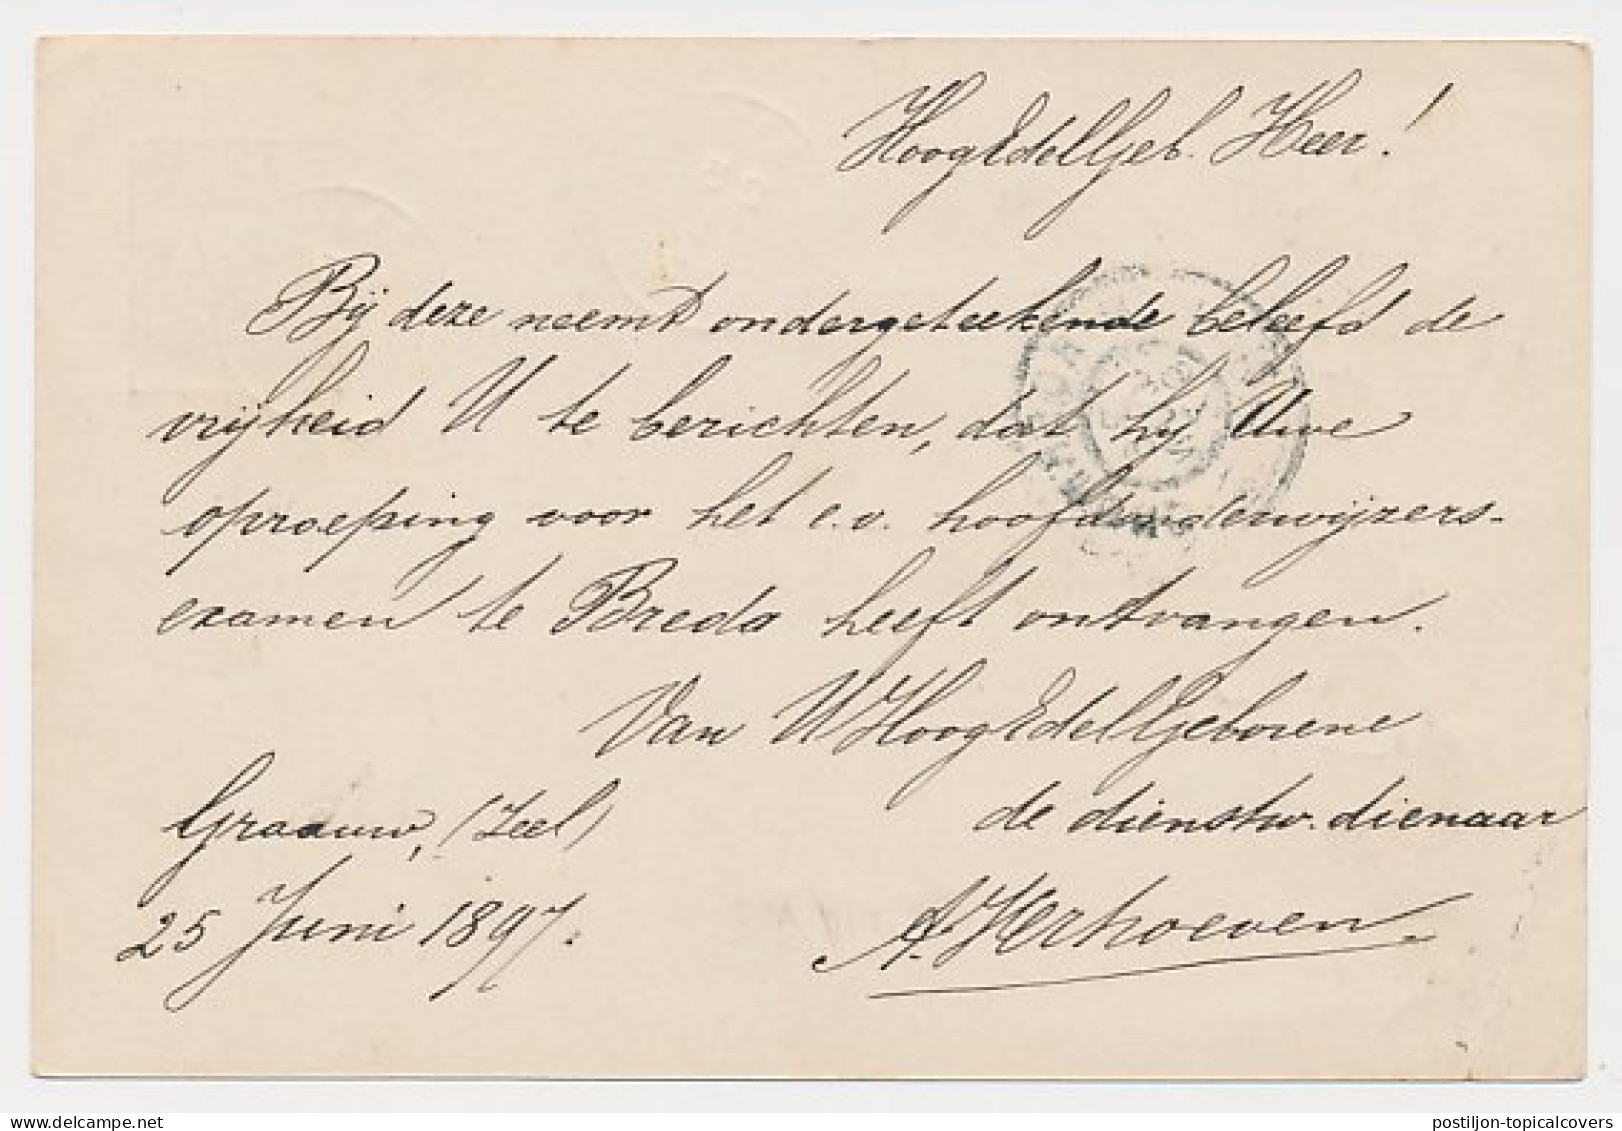 HoogEdelGeb. Heer!
Bij deze neemt ondergeteekende beleefd de
vrijheid U te berichten, dat hij Uwe
oproeping voor het e.v. hoofdonderwijzers-
examen te Breda heeft ontvangen.
Van UHoogEdelGeborene
de dienstw. dienaar
Graauw, (Zeel)
25 Juni 1897.
A. Verhoeven
postiljon-topicalcovers